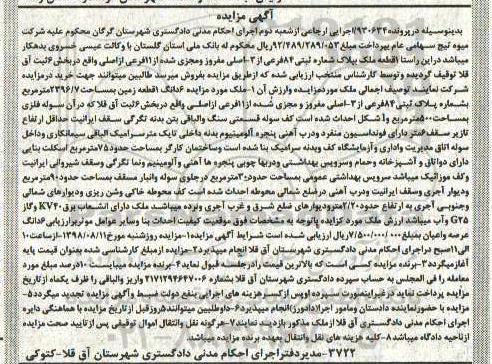 آگهی مزایده
بدینوسیله درپرونده۹۳۰۶۳۴/اجرایی ارجاعی ازشعبه دوم اجرای احکام مدنی دادگستری شهرستان گرگان محکوم علیه شرکت
میوه تیج سهامی عام بپرداخت مبلغ۹۲/۴۸۹/۲۸۹/۰۵۳ریال محکوم له بانک ملی استان گلستان با وکالت عیسی خسروی بدهکار
میباشد دراین راستا۱قطعه ملک بپلاک شماره ثبتی ۸۴فرعی از۳-اصلی مفروز ومجزی شده از۱۱فرعی ازاصلی واقع دربخش۶ثبت آق
قلا توقیف گردیده و توسط کارشناس منتخب ارزیابی شده که ازطریق مزایده بفروش میرسد طالبین میتوانند جهت خرید درمزایده
شرکت نمایند. توصیف اجمالی ملک موردمزایده وارزش آن ۱-ملک مورد مزایده ۶دانگ ۱قطعه زمین بمساحت۲۳۹۶/۷مترمربع
بشماره پلاک ثبتی ۸۴فرعی از۳-اصلی مفروز و مجزی شده از۱۱فرعی ازاصلی واقع دربخش۶ثبت آق قلا که درآن سوله فلزی
بمساحت۵۰۰مترمربع و[شکل احداث شده است کف سوله قسمتی سنگ والباقی بتن بدنه تگرگی سقف ایرانیت حداقل ارتفاع
تازیر سقف۶متر دارای فونداسیون منفرد ودرب آهنی پنجره آلومینیوم بدنه داخلی تایک مترسرامیک الباقی سیمانکاری وداخل
سوله اتاق مدیریت واداری وآزمایشگاه کف وبدنه سرامیک بنا شده است وساختمان کارگر بمساحت حدود۷۵مترمربع اسکلت بنایی
دارای دواتاق و آشپزخانه وحمام وسرویس بهداشتی ودربها چوبی پنجره ها آهنی وآلومینیم ونما تگرگی وسقف شیروانی ایرانیت
وکف موزائیک میباشد سرویس بهداشتی عمومی بمساحت حدود۳۰مترمربع درجلوی سوله وانبار مسقف بمساحت حدود۹۰مترمربع
ودیوار آجری وسقف ایرانیت ودرب آهنی درضلع شمالی محوطه احداث شده است کف محوطه خاکی وشن ریزی ودیوارهای شمالی
وجنوبی آجری به ارتفاع حدود۲/۲۰مترودیوارهای ضلع شرق و غرب آجری ونرده میباشد. ملک دارای انشعاب برق KV۴۰ وگاز
G۲۵ وآب میباشد ارزش ملک مورد مزایده باتوجه به مشخصات فوق موقعیت کیفیت احداث بنا وسایر عوامل موثردرارزیابی۶دانگ
عرصه واعیان بمبلغ۷/۵۰۰/۰۰۰/۰۰۰ریال ارزیابی شده است شرایط آگهی مزایده ۱-مزایده روزشنبه مورخ۱۳۹۸/۰۸/۱۱ازساعت۱۰
الی۱۱صبح دراجرای احکام مدنی دادگستری شهرستان آق قلا انجام میپذیرد۲-مزایده ازمبلغ کارشناسی شده بعنوان قیمت پایه
آغازمیگردد۳-برنده مزایده کسی است که بالاترین قیمت رادرجلسه قبول نماید۴-برنده مزایده میبایست ۱۰درصد مبلغ مورد
معامله را فی المجلس به حساب سپرده دادگستری شهرستان آق قلا بشماره ۲۱۷۱۲۹۴۶۴۷۰۰۶ واریز والباقی را ظرف یکماه ازتاریخ
مزایده پرداخت نماید درغیراینصورت سپرده اوپس ازکسرهزینه های اجرایی بنفع دولت ضبط وآگهی مزایده تجدید میگردد۵-
مزایده با حضورنماینده دادستان ومامور اجرا(دادورز)انجام میپذیرد۶-داوطلبین میتوانند۵روزقبل از تاریخ مزایده با هماهنگی دایره
اجرای احکام مدنی دادگستری آق قلا ازملک مزبور بازدید نمایند۷-هرگونه نقل وانتقال اموال توقیفی پس ازتایید صحت مزایده
ازناحیه دادگاه میباشد۸-کلیه هزینه های نقل وانتقال بعهده برنده مزایده میباشد.
۳۷۲۲-مدیردفتراجرای احکام مدنی دادگستری شهرستان آق قلا-کتوکی